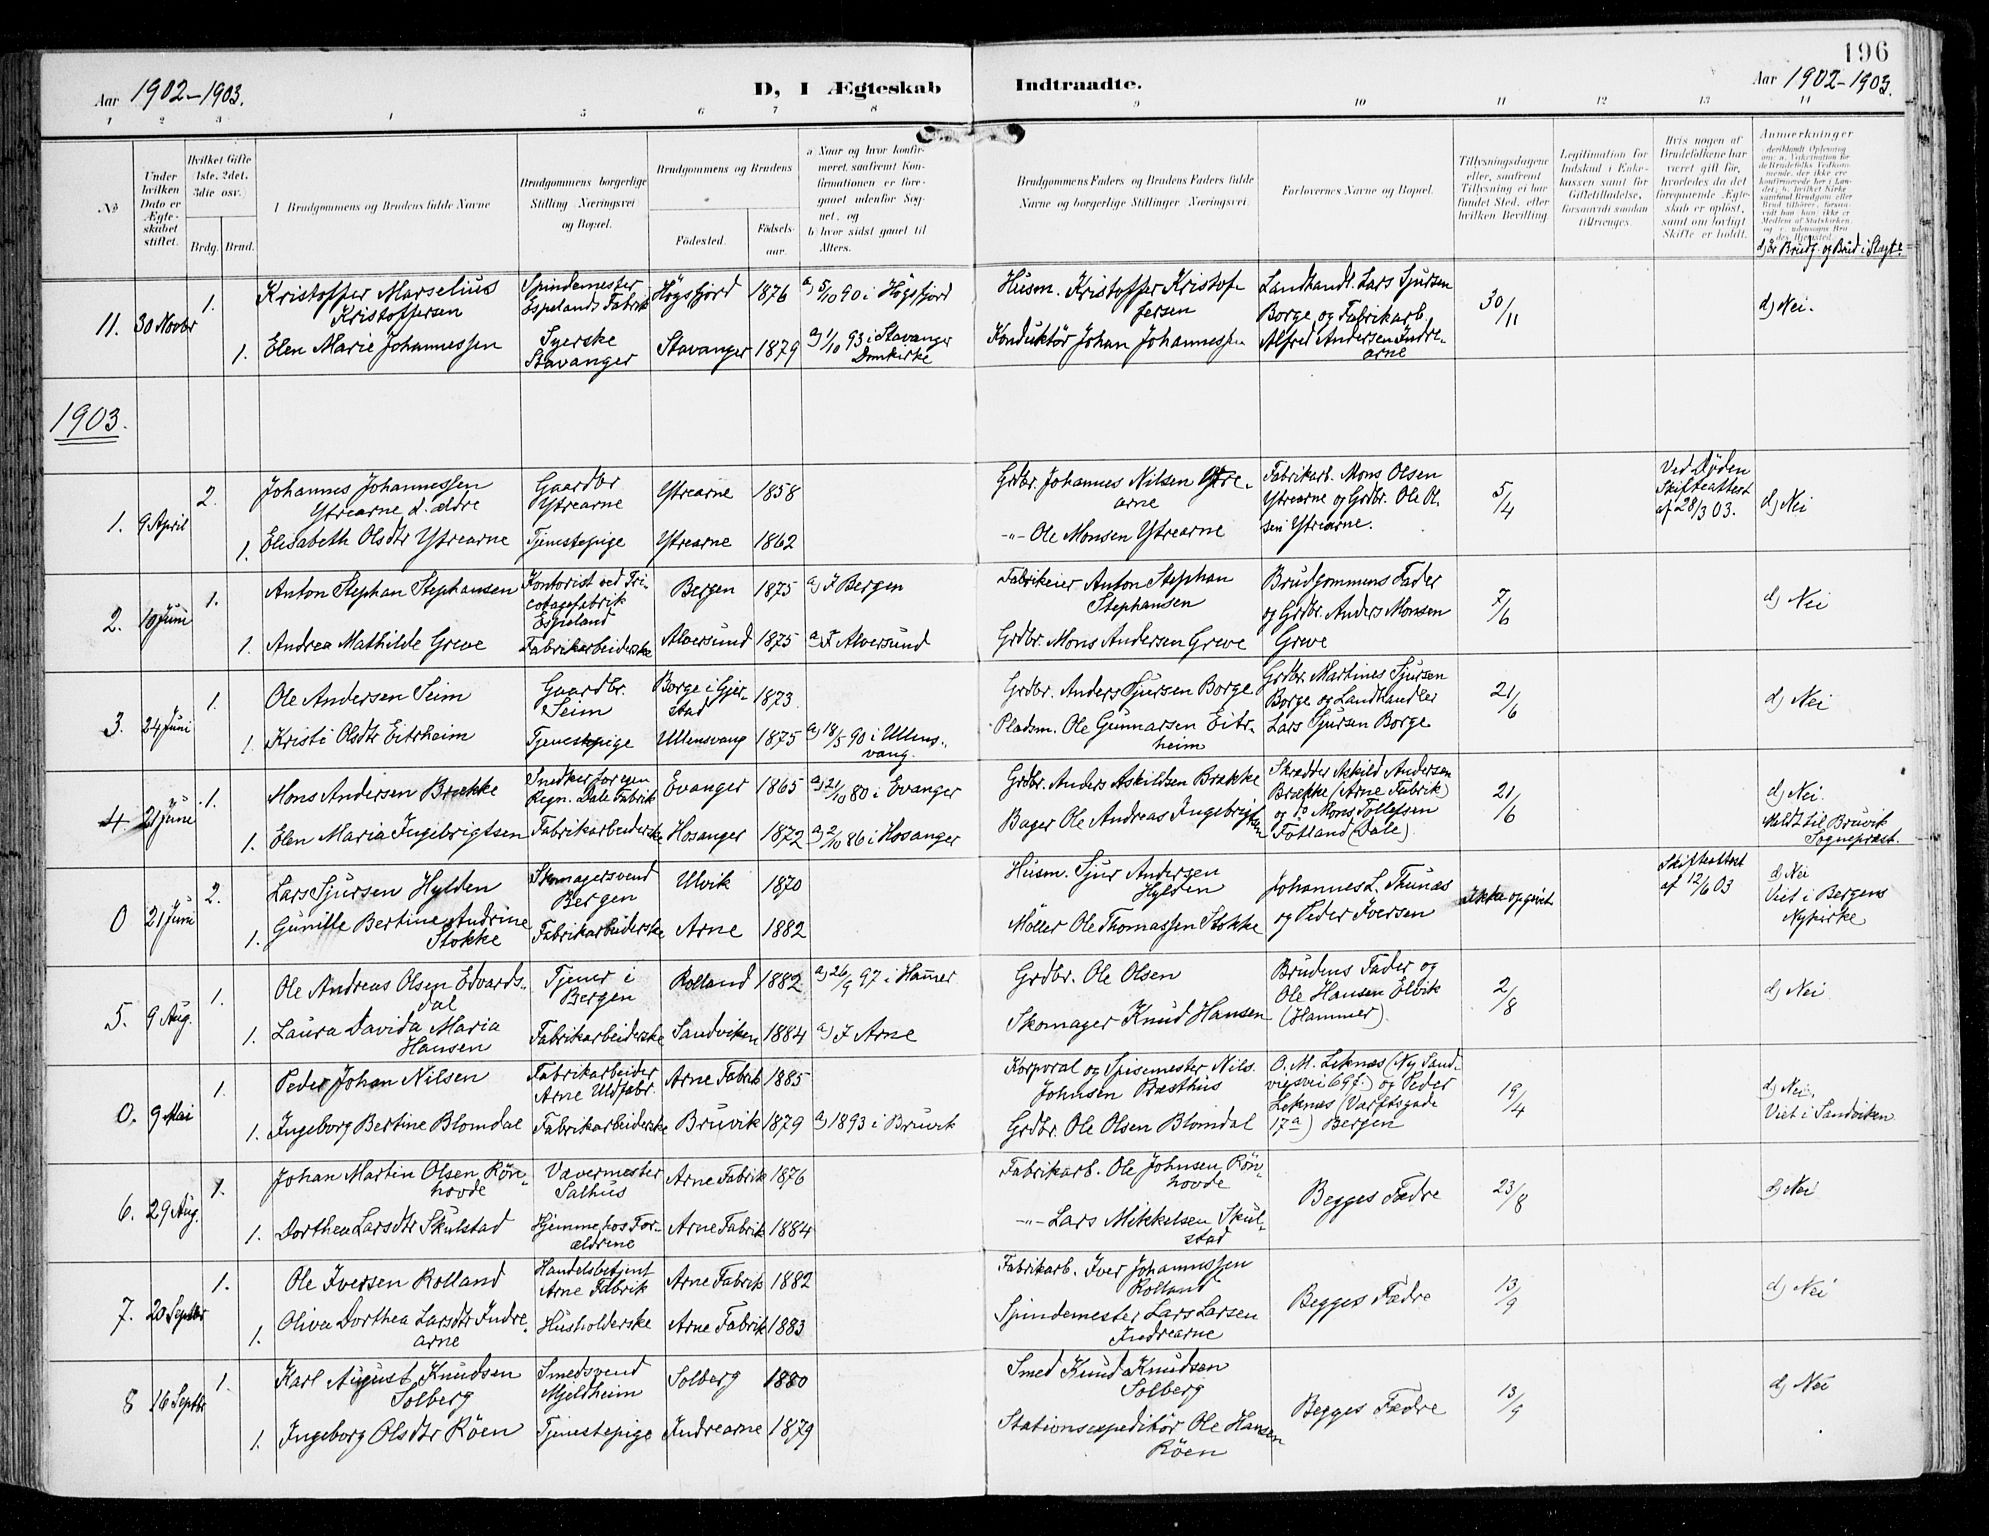 196
Aar 1902-1903.
D, I Ægteskab Indtraadte.
Aar 1902-1903.
1 2 3 4 5 6 7 8 9 10 11 12 13 14
No
Under hvilken Dato er Ægteskabet stiftet.
Hvilket Gifte 1ste, 2det, 3die osv.
Brdg. Brud.
Brudgommens og Brudens fulde Navne
Brudgommens borgerlige Stilling Næringsvei og Bopæl.
Brudgommens og Brudens
Fødested. Fødselsaar.
a Naar og hvor konfirmeret, saafremt Konfirmationen er foregaaet udenfor Sognet, og
b hvor sidst gaaet til Alters.
Brudgommens Faders og Brudens Faders fulde Navne og borgerlige Stillinger Næringsvei.
Forlovernes Navne og Bopæl.
Tillysningsdagene eller, saafremt Tillysning ei har fundet Sted, efter hvilken Bevilling.
Legitimation for Indskud i Enkekassen samt for Giftetilladelse, forsaavidt saadan tiltrænges.
Hvis nogen af Brudefolkene har været gift før, hvorledes da det foregaaende Ægteskab er opløst, samt om lovligt Skifte er holdt.
Anmerkninger
d) Er Brudg. og Brud i Slægt?
11. 30 Novbr 1. Kristoffer Marselius Kristoffersen
Spindemester Espelands Fabrik Högsfjord 1876 a) 5/10 90 i Högsfjord
Husm. Kristoffer Kristoffersen
Landhandl. Lars Sjursen Borge og Fabrikarb. Alfred Andersen Indrearne
30/11 d) Nei.
1. Elen Marie Johannessen
Syerske Stavanger Stavanger 1879 a) 1/10 93 i Stavanger Domkirke
Konduktör Johan Johannessen
1903.
1. 9 April 2. Johannes Johannessen Ytrearne d. ældre
Gaardbr Ytrearne Ytrearne 1858
Grdbr. Johannes Nilsen Ytrearne
Fabrikarb. Mons Olsen Ytrearne og Grdbr. Ole Olsen Ytrearne.
5/4 Ved Döden Skifteattest af 28/3 03. d) Nei
1. Elisabeth Olsdtr Ytrearne Tjenestepige Ytrearne 1862
-"- Ole Monsen Ytrearne
2. 10 Juni 1. Anton Stephan Stephansen
Kontorist ved Tricotagefabrik Espeland Bergen 1875 a) I Bergen
Fabrikeier Anton Stephan Stephansen
Brudgommens Fader og Grdbr. Anders Monsen Greve
7/6 d) Nei
1. Andrea Mathilde Greve Fabrikarbeiderske Alversund 1875 a) I Alversund
Grdbr. Mons Andersen Greve
3. 24 Juni 1. Ole Andersen Seim
Gaardbr. Seim Borge i Gjerstad 1873
Grdbr. Anders Sjursen Borge
Grdbr. Martines Sjursen Borge og Landhandler Lars Sjursen Borge
21/6 d) Nei
1. Kristi Olsdtr Eitrheim Tjenestepige Ullensvang 1875 a) 18/5 90 i Ullensvang.
Pladsm. Ole Gunnarsen Eitrheim
4 21 Juni 1. Mons Andersen Brække
Snedker for egen Regn. Dale Fabrik Evanger 1865 a) 21/10 80 i Evanger
Grdbr. Anders Askildsen Brække
Skrædder Askild Andersen Brække (Arne Fabrik) og Mons Tollefsen Fotland (Dale).
21/6 d) Nei. Meldt til Bruvik Sognepræst.
1. Elen Maria Ingebrigtsen Fabrikarbeiderske Hosanger 1872 a) 2/10 86 i Hosanger
Bager Ole Andreas Ingebrigtsen
0 21 Juni 2. Lars Sjursen Hylden
Skomagersvend Bergen Ulvik 1870
Husm. Sjur Andersen Hylden
Johannes L. Thunæs og Peder Iversen
ikke opgivet Skifteattest af 12/6 03 d) Nei Viet i Bergens Nykirke
1. Gunille Bertine Andrine Stokke Fabrikarbeiderske Arne 1882
Möller Ole Thomassen Stokke
5. 9 Aug. 1. Ole Andreas Olsen Edvardsdal
Tjener i Bergen Rolland 1882 a) 26/9 97 i Hamer
Grdbr. Ole Olsen
Brudens Fader og Ole Hansen Elvik (Hammer).
2/8 d) Nei
1. Laura Davida Maria Hansen Fabrikarbeiderske Sandviken 1884 a) I Arne
Skomager Knud Hansen
0. 9 Mai 1. Peder Johan Nilsen
Fabrikarbeider Arne Uldfabr. Arne Fabrik 1885
Korporal og Spisemester Nils Johnsen Præsthus
O. M. Leknæs (Ny Sandvigsvei 69 f.) og Peder Leknæs (Varftsgade 17a) Bergen
19/4 d) Nei. Viet i Sandviken
1. Ingeborg Bertine Blomdal Fabrikarbeiderske Bruvik 1879 a) 1893 i Bruvik
Grdbr. Ole Olsen Blomdal
6. 29 Aug. 1. Johan Martin Olsen Rönhovde
Vævermester Salhus Arne Fabrik 1876
Fabrikarb. Ole Johnsen Rönhovde
Begges Fædre 23/8 d) Nei
1. Dorthea Larsdtr Skulstad Hjemme hos Forældrene Arne Fabrik 1884
-"- Lars Mikkelsen Skulstad
7. 20 Septbr 1. Ole Iversen Rolland
Handelsbetjent Arne Fabrik Arne Fabrik 1882
Fabrikarb. Iver Johannessen Rolland
Begges Fædre 13/9 d) Nei
1. Oliva Dorthea Larsdtr Indrearne Husholderske Arne Fabrik 1883
Spindemester Lars Larsen Indrearne
8 16 Septbr 1. Karl August Knudsen Solberg
Smedsvend Mjeldheim Solberg 1880
Smed Knud Knudsen Solberg
Begges Fædre 13/9 d) Nei
1. Ingeborg Olsdtr Röen Tjenestepige Indrearne 1879
Stationsexpeditör Ole Hansen Röen